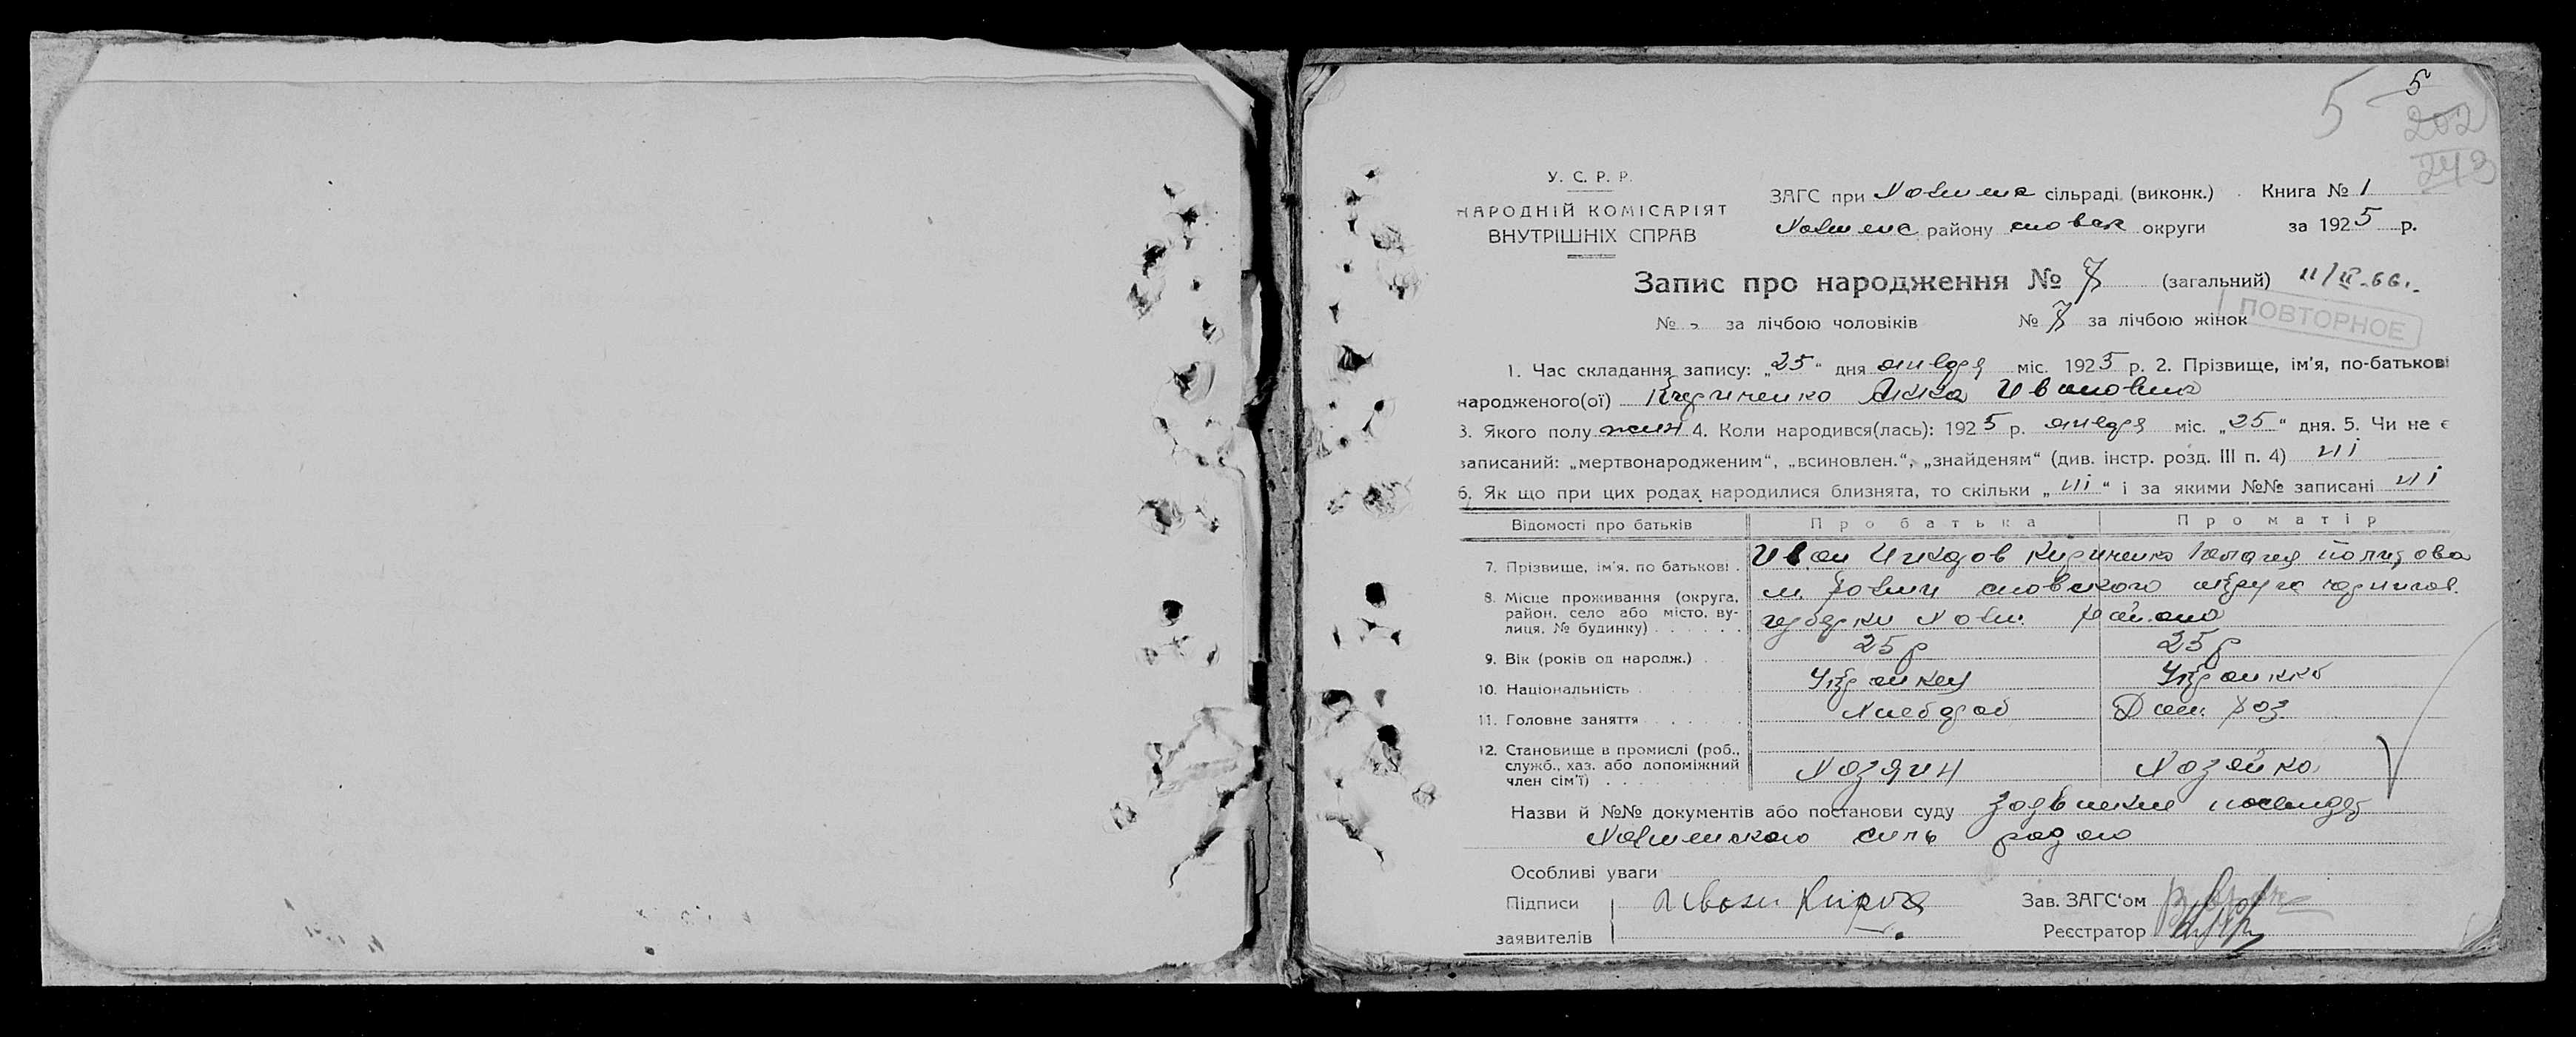 5 5
202
243
У. С. Р. Р.
НАРОДНІЙ КОМІСАРІЯТ
ВНУТРІШНІХ СПРАВ
ЗАГС при сільраді (виконк.) Книга № 1
району округи за 1925 р.
Запис про народження № 7 (загальний) 11/II-66.
ПОВТОРНОЕ
№ за лічбою чоловіків № 7 за лічбою жінок
1. Час складання запису: „25“ дня января міс. 1925 р. 2. Прізвище, ім'я, по-батькові
народженого(ої) Кириченко Анна Ивановна
3. Якого полу жин 4. Коли народився(лась): 1925 р. января міс. „25“ дня. 5. Чи не є
записаний: „мертвонародженим“, „всиновлен.“, „знайденям“ (див. інстр. розд. III п. 4) ні
6. Як що при цих родах народилися близнята, то скільки „ні“ і за якими №№ записані ні
Відомості про батьків Про батька Про матір
7. Прізвище, ім'я, по батькові Иван Кириченко Пелагея
8. Місце проживання (округа,
район, село або місто, ву-
лиця, № будинку)
9. Вік (років од народж.) 25 р 25 р
10. Національність
11. Головне заняття Хлебороб Дом. хоз
12. Становище в промислі (роб.,
служб., хаз. або допоміжний
член сім'ї) Хозяин Хозяйка
Назви й №№ документів або постанови суду
Особливі уваги
Підписи Иван
заявителів
Зав. ЗАГС'ом
Реєстратор